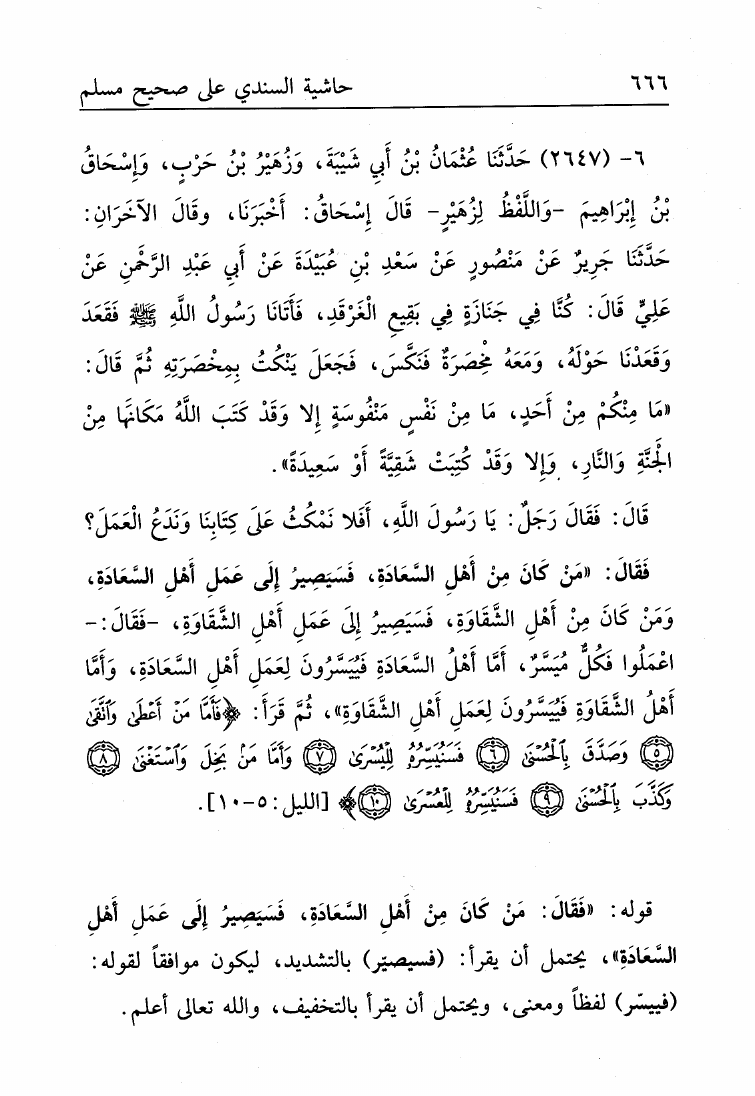 ٦٦٦ حاشية السندي على صحيح مسلم
٦- (٢٦٤٧) حَدَّثَنَا عُثْمَانُ بْنُ أَبِي شَيْبَةَ، وَزُهَيْرُ بْنُ حَرْبٍ، وَإِسْحَاقُ
بْنُ إِبْرَاهِيمَ -وَاللَّفْظُ لِزُهَيْرٍ- قَالَ إِسْحَاقُ: أَخْبَرَنَا، وقَالَ الآخَرَانِ:
حَدَّثَنَا جَرِيرٌ عَنْ مَنْصُورٍ عَنْ سَعْدِ بْنِ عُبَيْدَةَ عَنْ أَبِي عَبْدِ الرَّحْمَنِ عَنْ
عَلِيٍّ قَالَ: كُنَّا فِي جَنَازَةٍ فِي بَقِيعِ الْغَرْقَدِ، فَأَتَانَا رَسُولُ اللَّهِ ﷺ فَقَعَدَ
وَقَعَدْنَا حَوْلَهُ، وَمَعَهُ مِخْصَرَةٌ فَنَكَّسَ، فَجَعَلَ يَنْكُتُ بِمِخْصَرَتِهِ ثُمَّ قَالَ:
«مَا مِنْكُمْ مِنْ أَحَدٍ، مَا مِنْ نَفْسٍ مَنْفُوسَةٍ إِلا وَقَدْ كَتَبَ اللَّهُ مَكَانَهَا مِنْ
الْجَنَّةِ وَالنَّارِ، وَإِلا وَقَدْ كُتِبَتْ شَقِيَّةً أَوْ سَعِيدَةً».
قَالَ: فَقَالَ رَجَلٌ: يَا رَسُولَ اللَّهِ، أَفَلا نَمْكُثُ عَلَى كِتَابِنَا وَنَدَعُ الْعَمَلَ؟
فَقَالَ: «مَنْ كَانَ مِنْ أَهْلِ السَّعَادَةِ، فَسَيَصِيرُ إِلَى عَمَلِ أَهْلِ السَّعَادَةِ،
وَمَنْ كَانَ مِنْ أَهْلِ الشَّقَاوَةِ، فَسَيَصِيرُ إِلَى عَمَلِ أَهْلِ الشَّقَاوَةِ، -فَقَالَ:-
اعْمَلُوا فَكُلٌّ مُيَسَّرٌ، أَمَّا أَهْلُ السَّعَادَةِ فَيُيَسَّرُونَ لِعَمَلِ أَهْلِ السَّعَادَةِ، وَأَمَّا
أَهْلُ الشَّقَاوَةِ فَيُيَسَّرُونَ لِعَمَلِ أَهْلِ الشَّقَاوَةِ»، ثُمَّ قَرَأَ: ﴿فَأَمَّا مَنْ أَعْطَىٰ وَٱتَّقَىٰ
۝٥ وَصَدَّقَ بِٱلْحُسْنَىٰ ۝٦ فَسَنُيَسِّرُهُۥ لِلْيُسْرَىٰ ۝٧ وَأَمَّا مَنۢ بَخِلَ وَٱسْتَغْنَىٰ ۝٨
وَكَذَّبَ بِٱلْحُسْنَىٰ ۝٩ فَسَنُيَسِّرُهُۥ لِلْعُسْرَىٰ ۝١٠﴾ [الليل: ٥-١٠].
قوله: «فَقَالَ: مَنْ كَانَ مِنْ أَهْلِ السَّعَادَةِ، فَسَيَصِيرُ إِلَى عَمَلِ أَهْلِ
السَّعَادَةِ»، يحتمل أن يقرأ: (فسيصيّر) بالتشديد، ليكون موافقاً لقوله:
(فييسّر) لفظاً ومعنى، ويحتمل أن يقرأ بالتخفيف، والله تعالى أعلم.